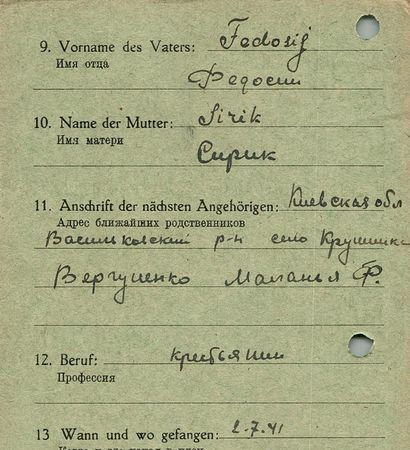 9. Vorname des Vaters: Fedosij
Имя отца
Федосий
10. Name der Mutter: Sirik
Имя матери
Сирик
11. Anschrift der nächsten Angehörigen: Киевская обл
Адрес ближайших родственников
Васильковский р-н село Крушинка
Вергуненко Маланья Ф.
12. Beruf: крестьянин
Профессия
13 Wann und wo gefangen: 2.7.41